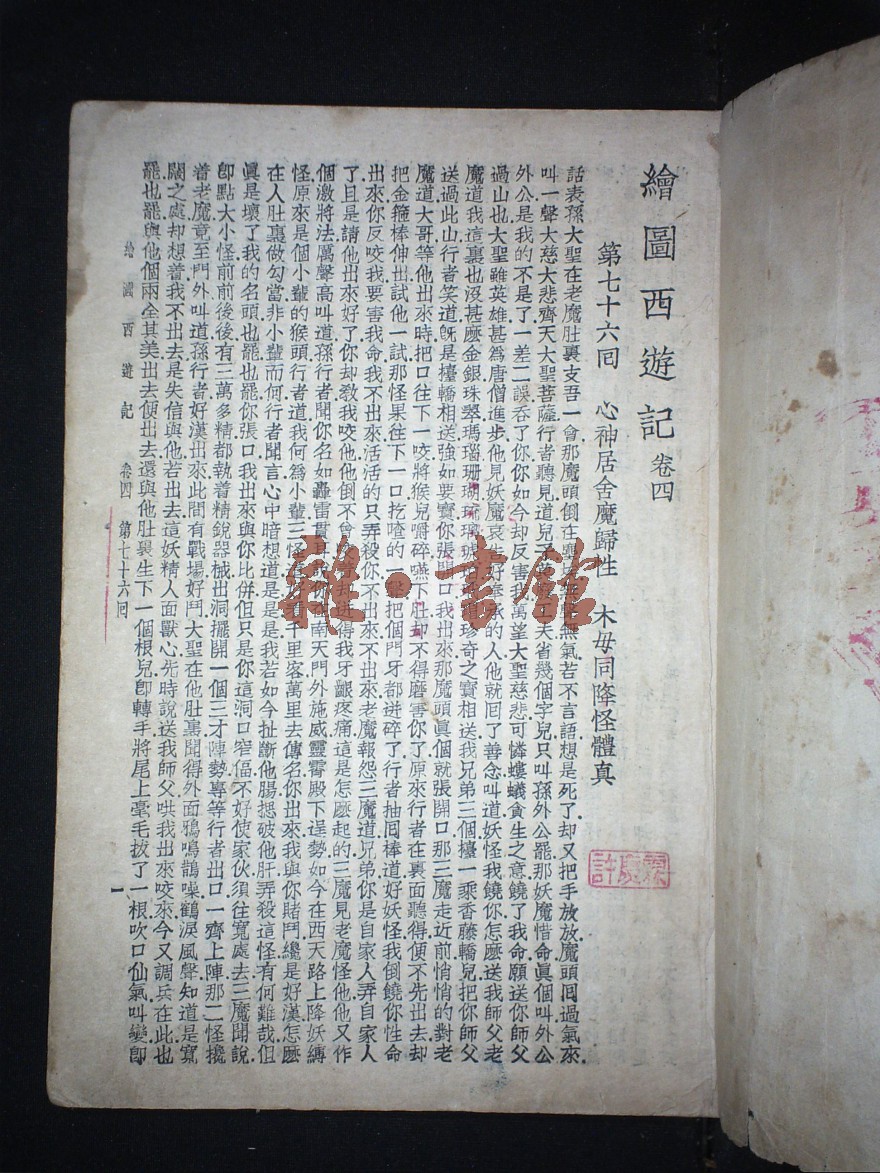 繪圖西遊記 卷四
第七十六回 心神居舍魔歸性 木母同降怪體真
話表孫大聖在老魔肚裏支吾一會那魔頭倒在塵埃無聲無氣若不言語想是死了却又把手放放魔頭回過氣來
叫一聲大慈大悲齊天大聖菩薩行者聽見道兒子莫廢工夫省幾個字兒只叫孫外公罷那妖魔惜命眞個叫外公
外公是我的不是了一差二誤吞了你你如今却反害我萬望大聖慈悲可憐螻蟻貪生之意饒了我命願送你師父
過山也大聖雖英雄甚爲唐僧進步他見妖魔哀告好奉承的人他就回了善念叫道妖怪我饒你怎麽送我師父老
魔道我這裏也沒甚麽金銀珠翠瑪瑙珊瑚琉璃琥珀玳瑁珍奇之寶相送我兄弟三個擡一乘香藤轎兒把你師父
送過此山行者笑道旣是擡轎相送強如要寶你張開口我出來那魔頭眞個就張開口那三魔走近前悄悄的對老
魔道大哥等他出來時把口往下一咬將猴兒嚼碎嚥下肚却不得磨害你了原來行者在裏面聽得便不先出去却
把金箍棒伸出試他一試那怪果往下一口扢喳的一聲把個門牙都迸碎了行者抽回棒道好妖怪我倒饒你性命
出來你反咬我要害我命我不出來活活的只弄殺你不出來不出來老魔報怨三魔道兄弟你是自家人弄自家人
了且是請他出來好了你却敎我咬他他倒不曾咬着却迸得我牙齦疼痛這是怎麽起的三魔見老魔怪他他又作
個激將法厲聲高叫道孫行者聞你名如轟雷貫耳說你在南天門外施威靈霄殿下逞勢如今在西天路上降妖縛
怪原來是個小輩的猴頭行者道我何爲小輩三怪道好看千里客萬里去傳名你出來我與你賭鬥纔是好漢怎麽
在人肚裏做勾當非小輩而何行者聞言心中暗想道是是是我若如今扯斷他腸揌破他肝弄殺這怪有何難哉但
眞是壞了我的名頭也罷也罷你張口我出來與你比併但只是你這洞口窄偪不好使家伙須往寬處去三魔聞說
卽點大小怪前前後後有三萬多精都執着精銳器械出洞擺開一個三才陣勢專等行者出口一齊上陣那二怪攙
着老魔竟至門外叫道孫行者好漢出來此間有戰場好鬥大聖在他肚裏聞得外面鴉鳴鵲噪鶴淚風聲知道是寬
闊之處却想着我不出去是失信與他若出去這妖精人面獸心先時說送我師父哄我出來咬來今又調兵在此也
罷也罷與他個兩全其美出去便出去還與他肚裏生下一個根兒卽轉手將尾上毫毛拔了一根吹口仙氣叫變卽
繪圖西遊記 卷四 第七十六回 一
雜·書館